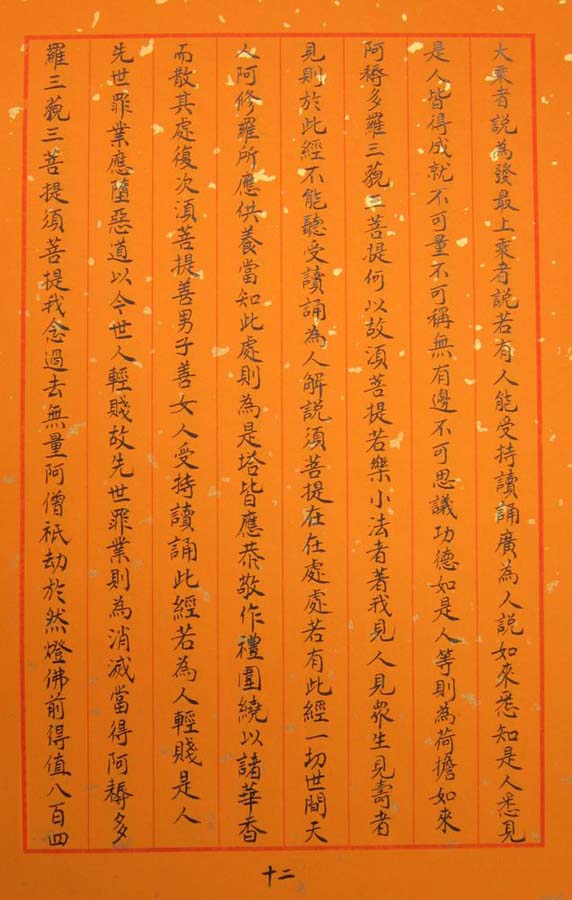 大乘者説為發最上乘者説若有人能受持讀誦廣為人説如來悉知是人悉見
是人皆得成就不可量不可稱無有邊不可思議功德如是人等則為荷擔如來
阿耨多羅三藐三菩提何以故須菩提若樂小法者著我見人見眾生見壽者
見則於此經不能聽受讀誦為人解説須菩提在在處處若有此經一切世間天
人阿修羅所應供養當知此處則為是塔皆應恭敬作禮圍繞以諸華香
而散其處復次須菩提善男子善女人受持讀誦此經若為人輕賤是人
先世罪業應墮惡道以今世人輕賤故先世罪業則為消滅當得阿耨多
羅三藐三菩提須菩提我念過去無量阿僧祇劫於然燈佛前得值八百四
十二